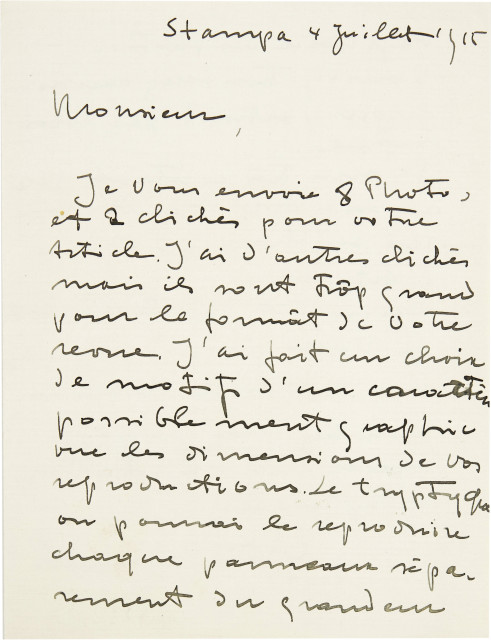 Stampa 4 Juillet 1915
Monsieur,
Je Vous envoie 8 Photo,
et 2 clichés pour votre
Article. J'ai d'autres clichés
mais ils sont Trôp grand
pour le formât de Votre
revue. J'ai fait un choix
de motifs d'un caractèr
possible ment graphic
vue les dimensions de vos
reproductions. Le tryptyque
on pourrai le reproduire
chaque panneaux sépa-
rement du grandeur